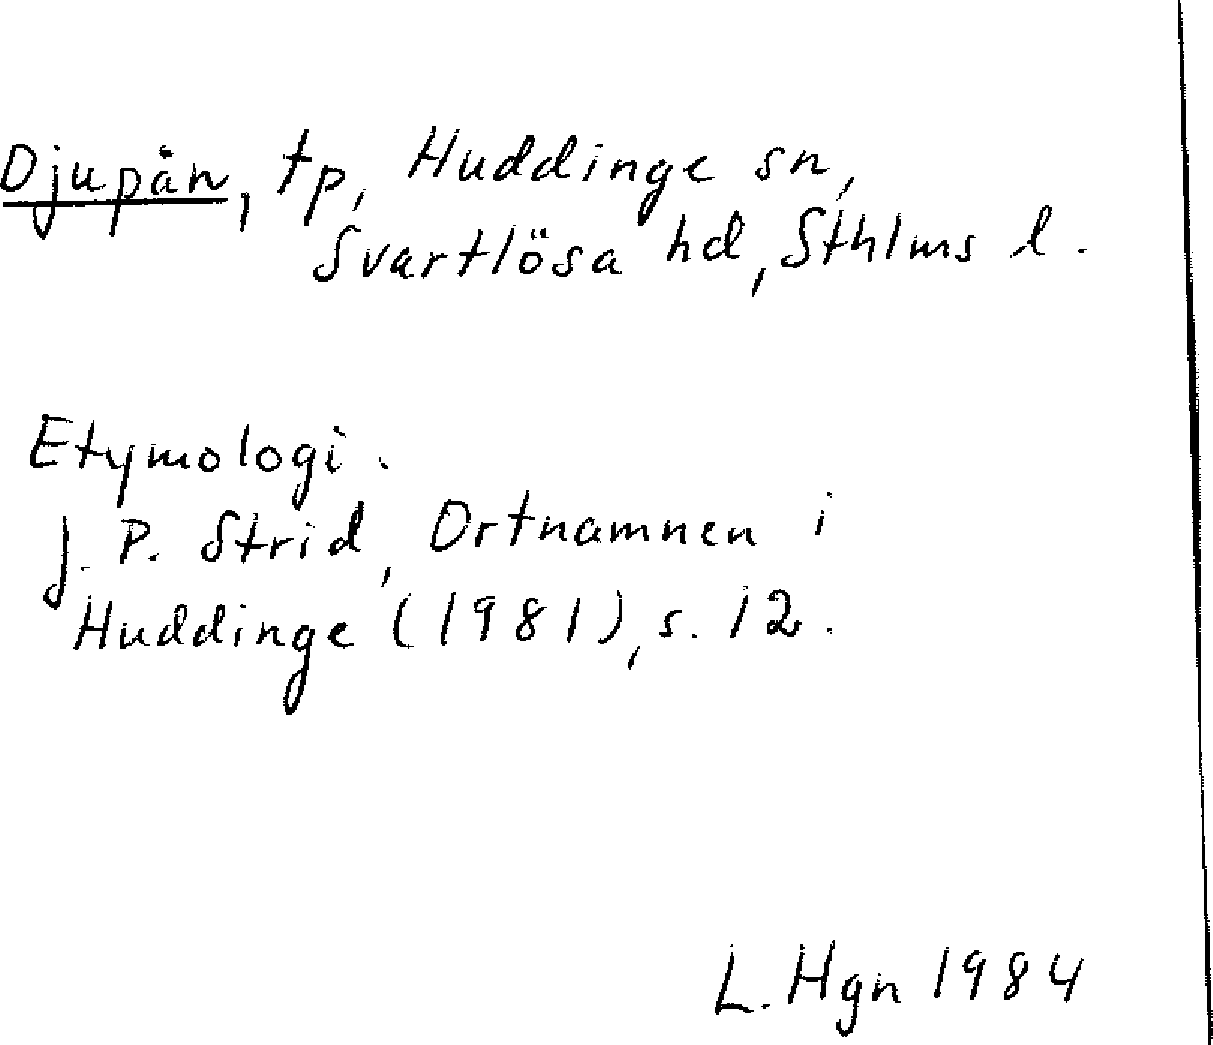 Djupån, tp, Huddinge sn,
Svartlösa hd, Sthlms l.
Etymologi.
J. P. Strid, Ortnamnen i
Huddinge (1981), s. 12.
L. Hgn 1984